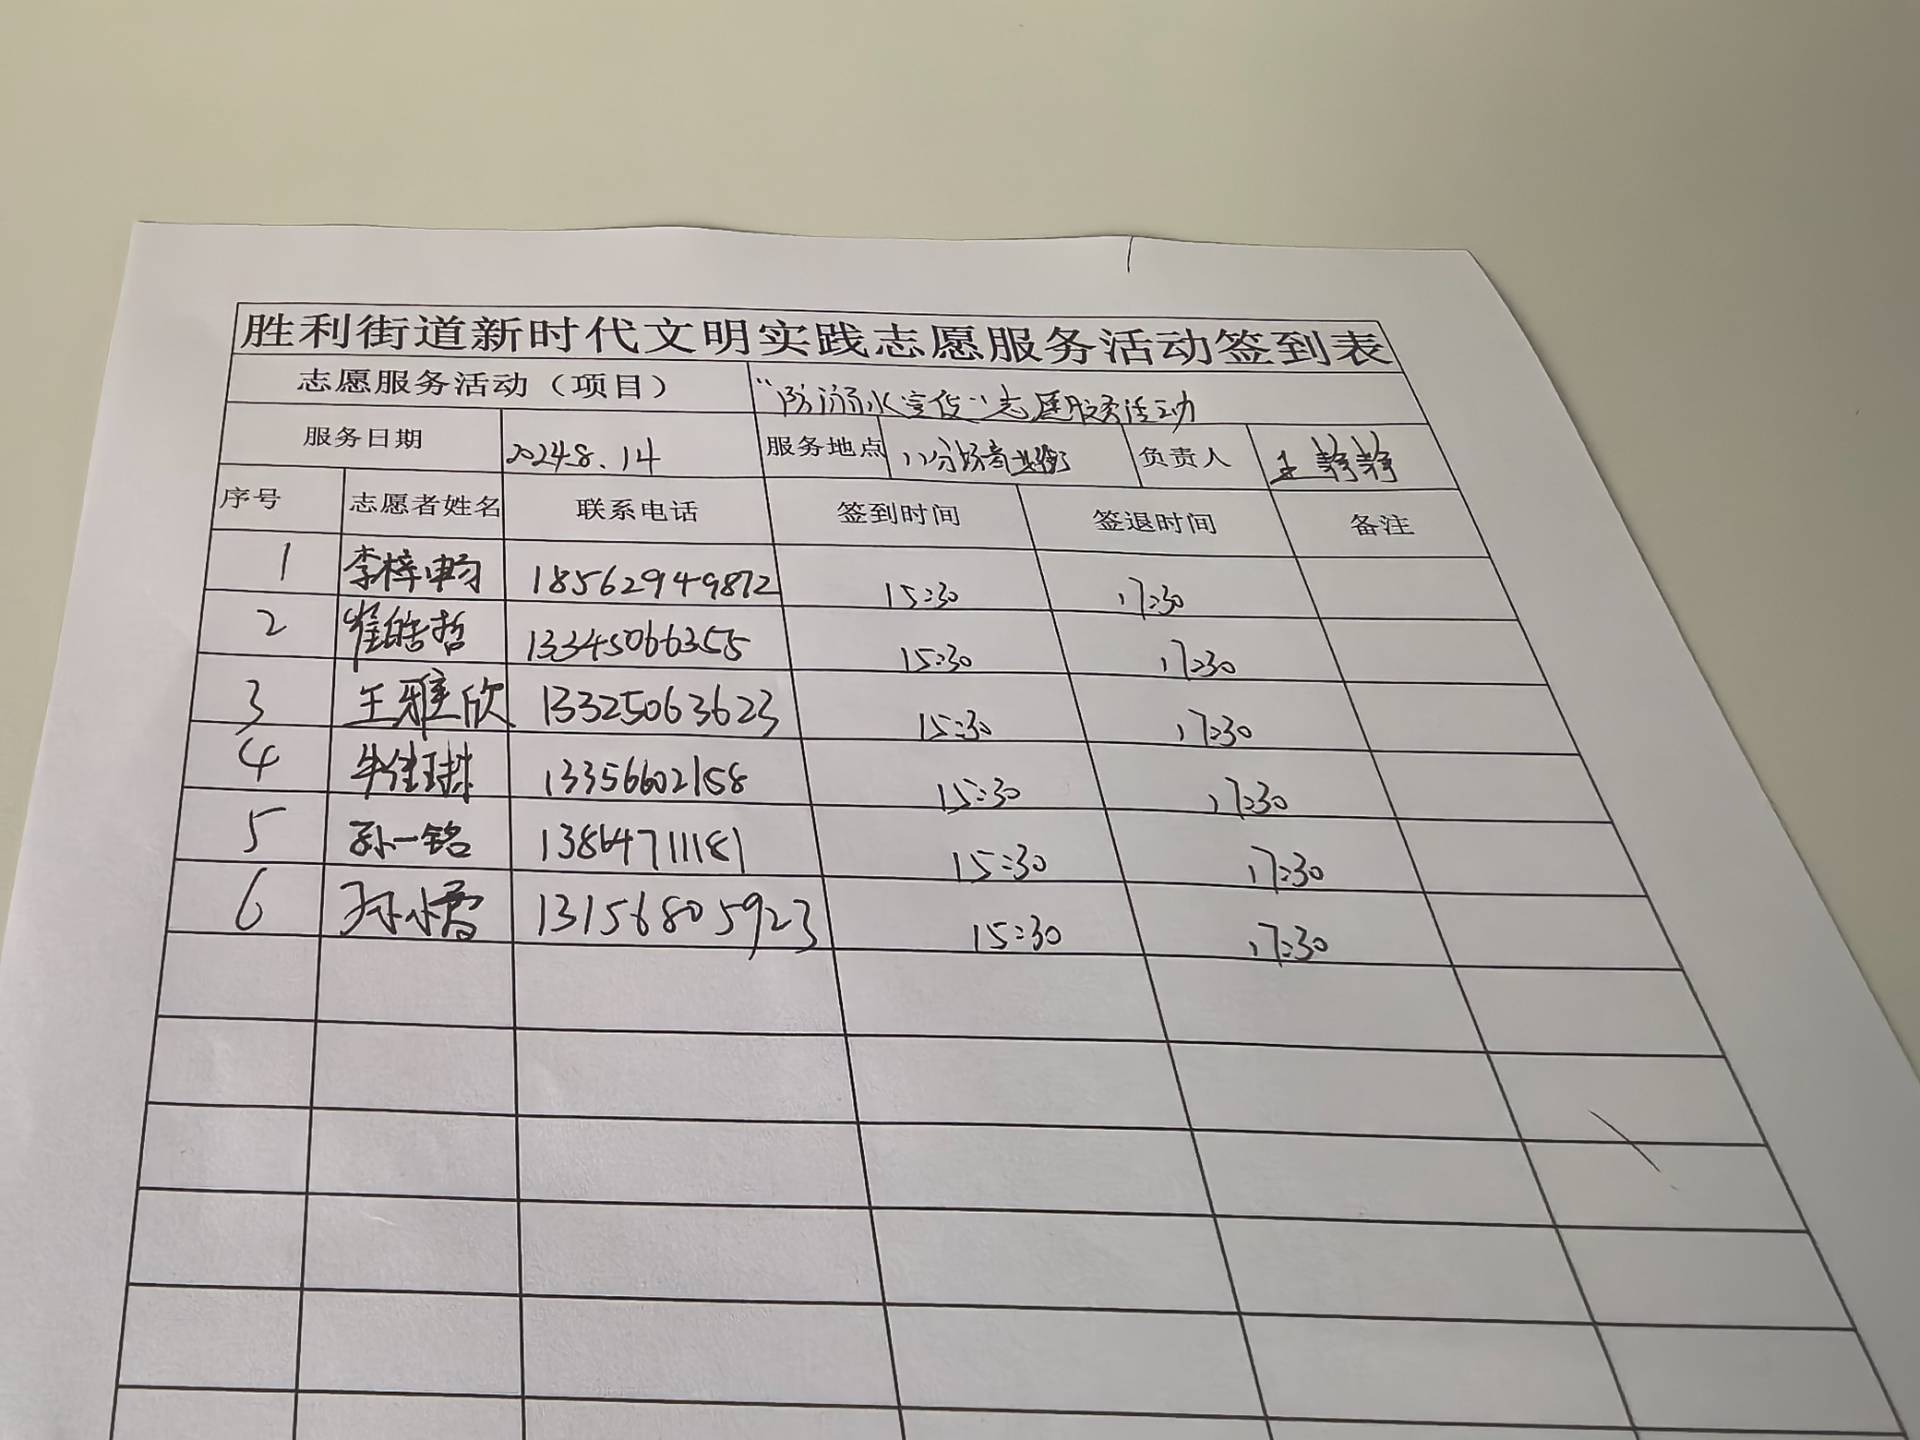 胜利街道新时代文明实践志愿服务活动签到表
志愿服务活动（项目） “防溺水宣传”志愿服务活动
服务日期 2024.8.14 服务地点 负责人 王静静
序号 志愿者姓名 联系电话 签到时间 签退时间 备注
1 李梓畅 18562949872 15:30 17:30
2 崔皓哲 13345066355 15:30 17:30
3 王雅欣 13325063623 15:30 17:30
4 牛佳琪 13356602158 15:30 17:30
5 孙一铭 13864711181 15:30 17:30
6 孙小雪 13156805923 15:30 17:30